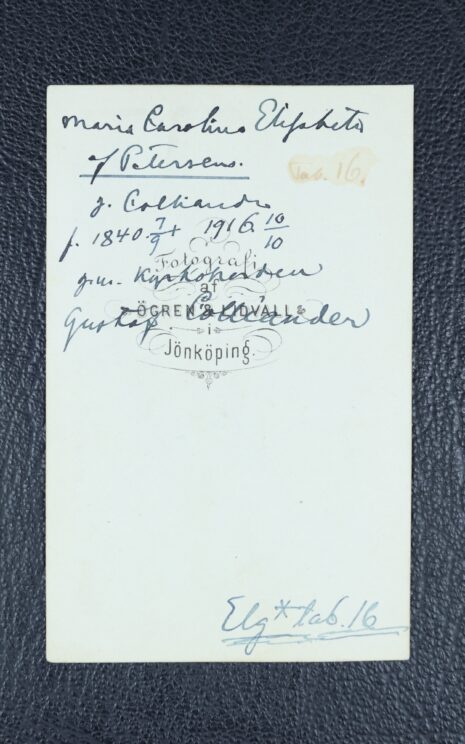 Maria Carolina Elisabeth
af Petersens.
Tab. 16.
g. Colliander
f. 1840 7/9 + 1916 10/10
Fotografi
gm. Kyrkoherden
af
ÖGREN & LIDVALL
Gustaf Colliander
i
Jönköping.
Elg* tab. 16